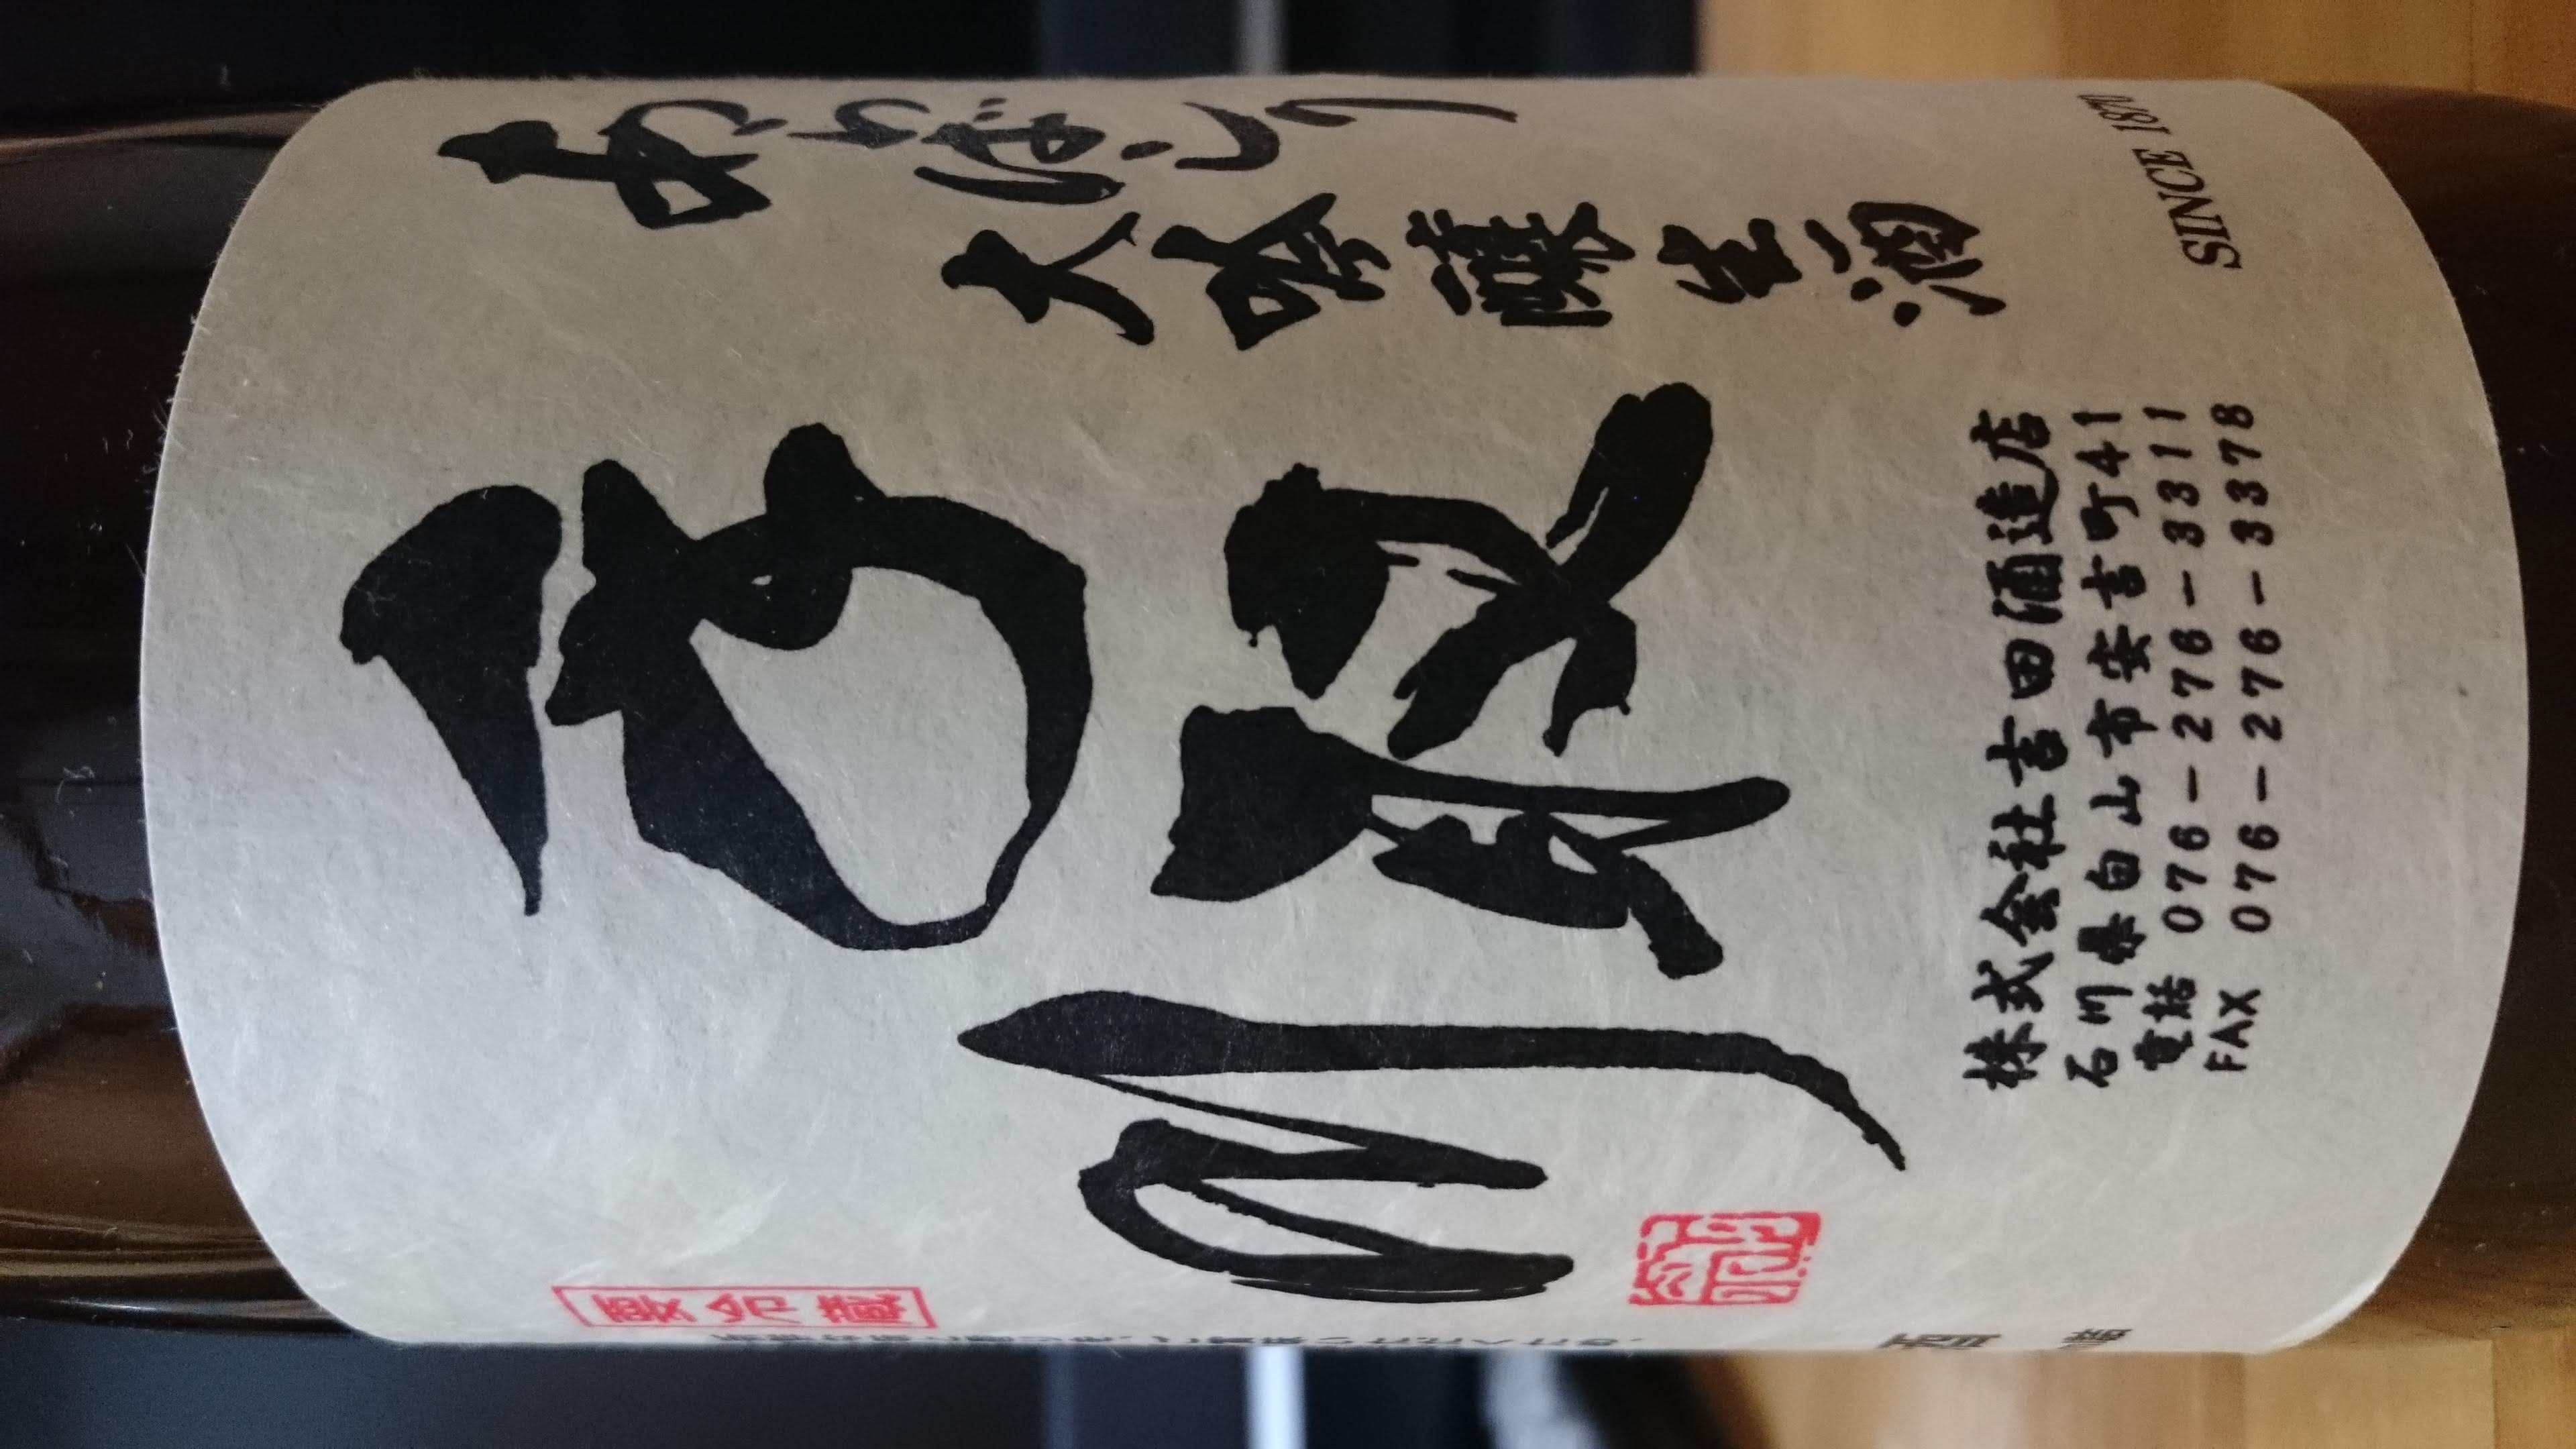 あらばしり
大吟醸生酒
手取川
SINCE 1870
株式会社吉田酒造店
石川県白山市安吉町41
電話 076-276-3311
FAX 076-276-3378
要冷蔵